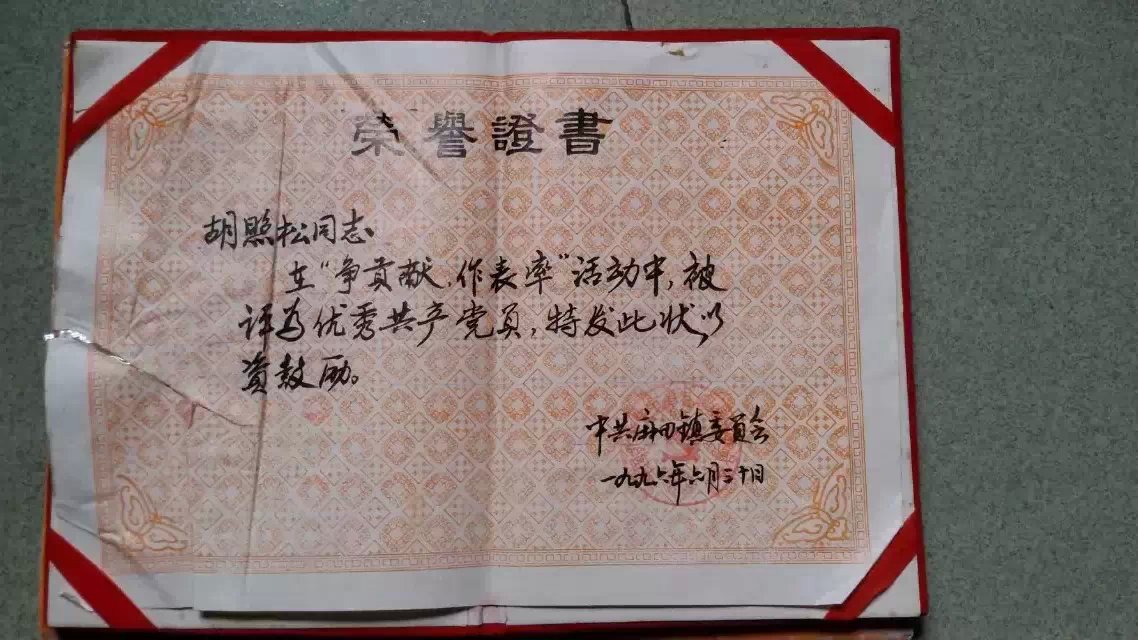 荣譽證書
胡照松同志
在“争贡献,作表率”活动中,被
评为优秀共产党员,特发此状以
资鼓励。
中共麻田镇委员会
一九九六年六月三十日